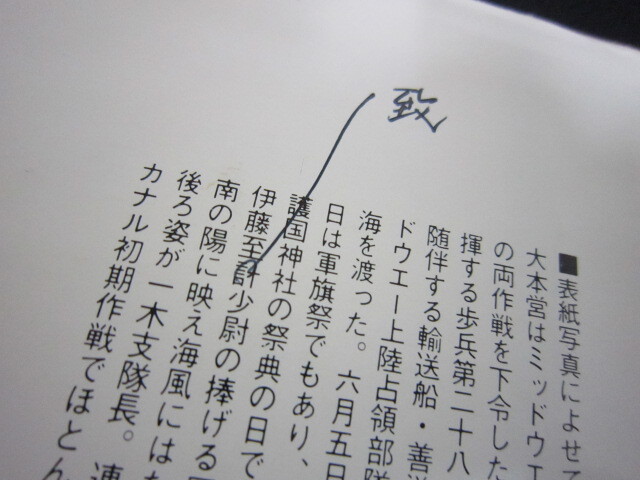 致
■表紙写真によせて
大本営はミッドウエ
の両作戦を下令した
揮する歩兵第二十八
随伴する輸送船・善洋
ドウエー上陸占領部隊
海を渡った。六月五日
日は軍旗祭でもあり、
護国神社の祭典の日で
伊藤至尉少尉の捧げる
南の陽に映え海風には
後ろ姿が一木支隊長。連
カナル初期作戦でほとん